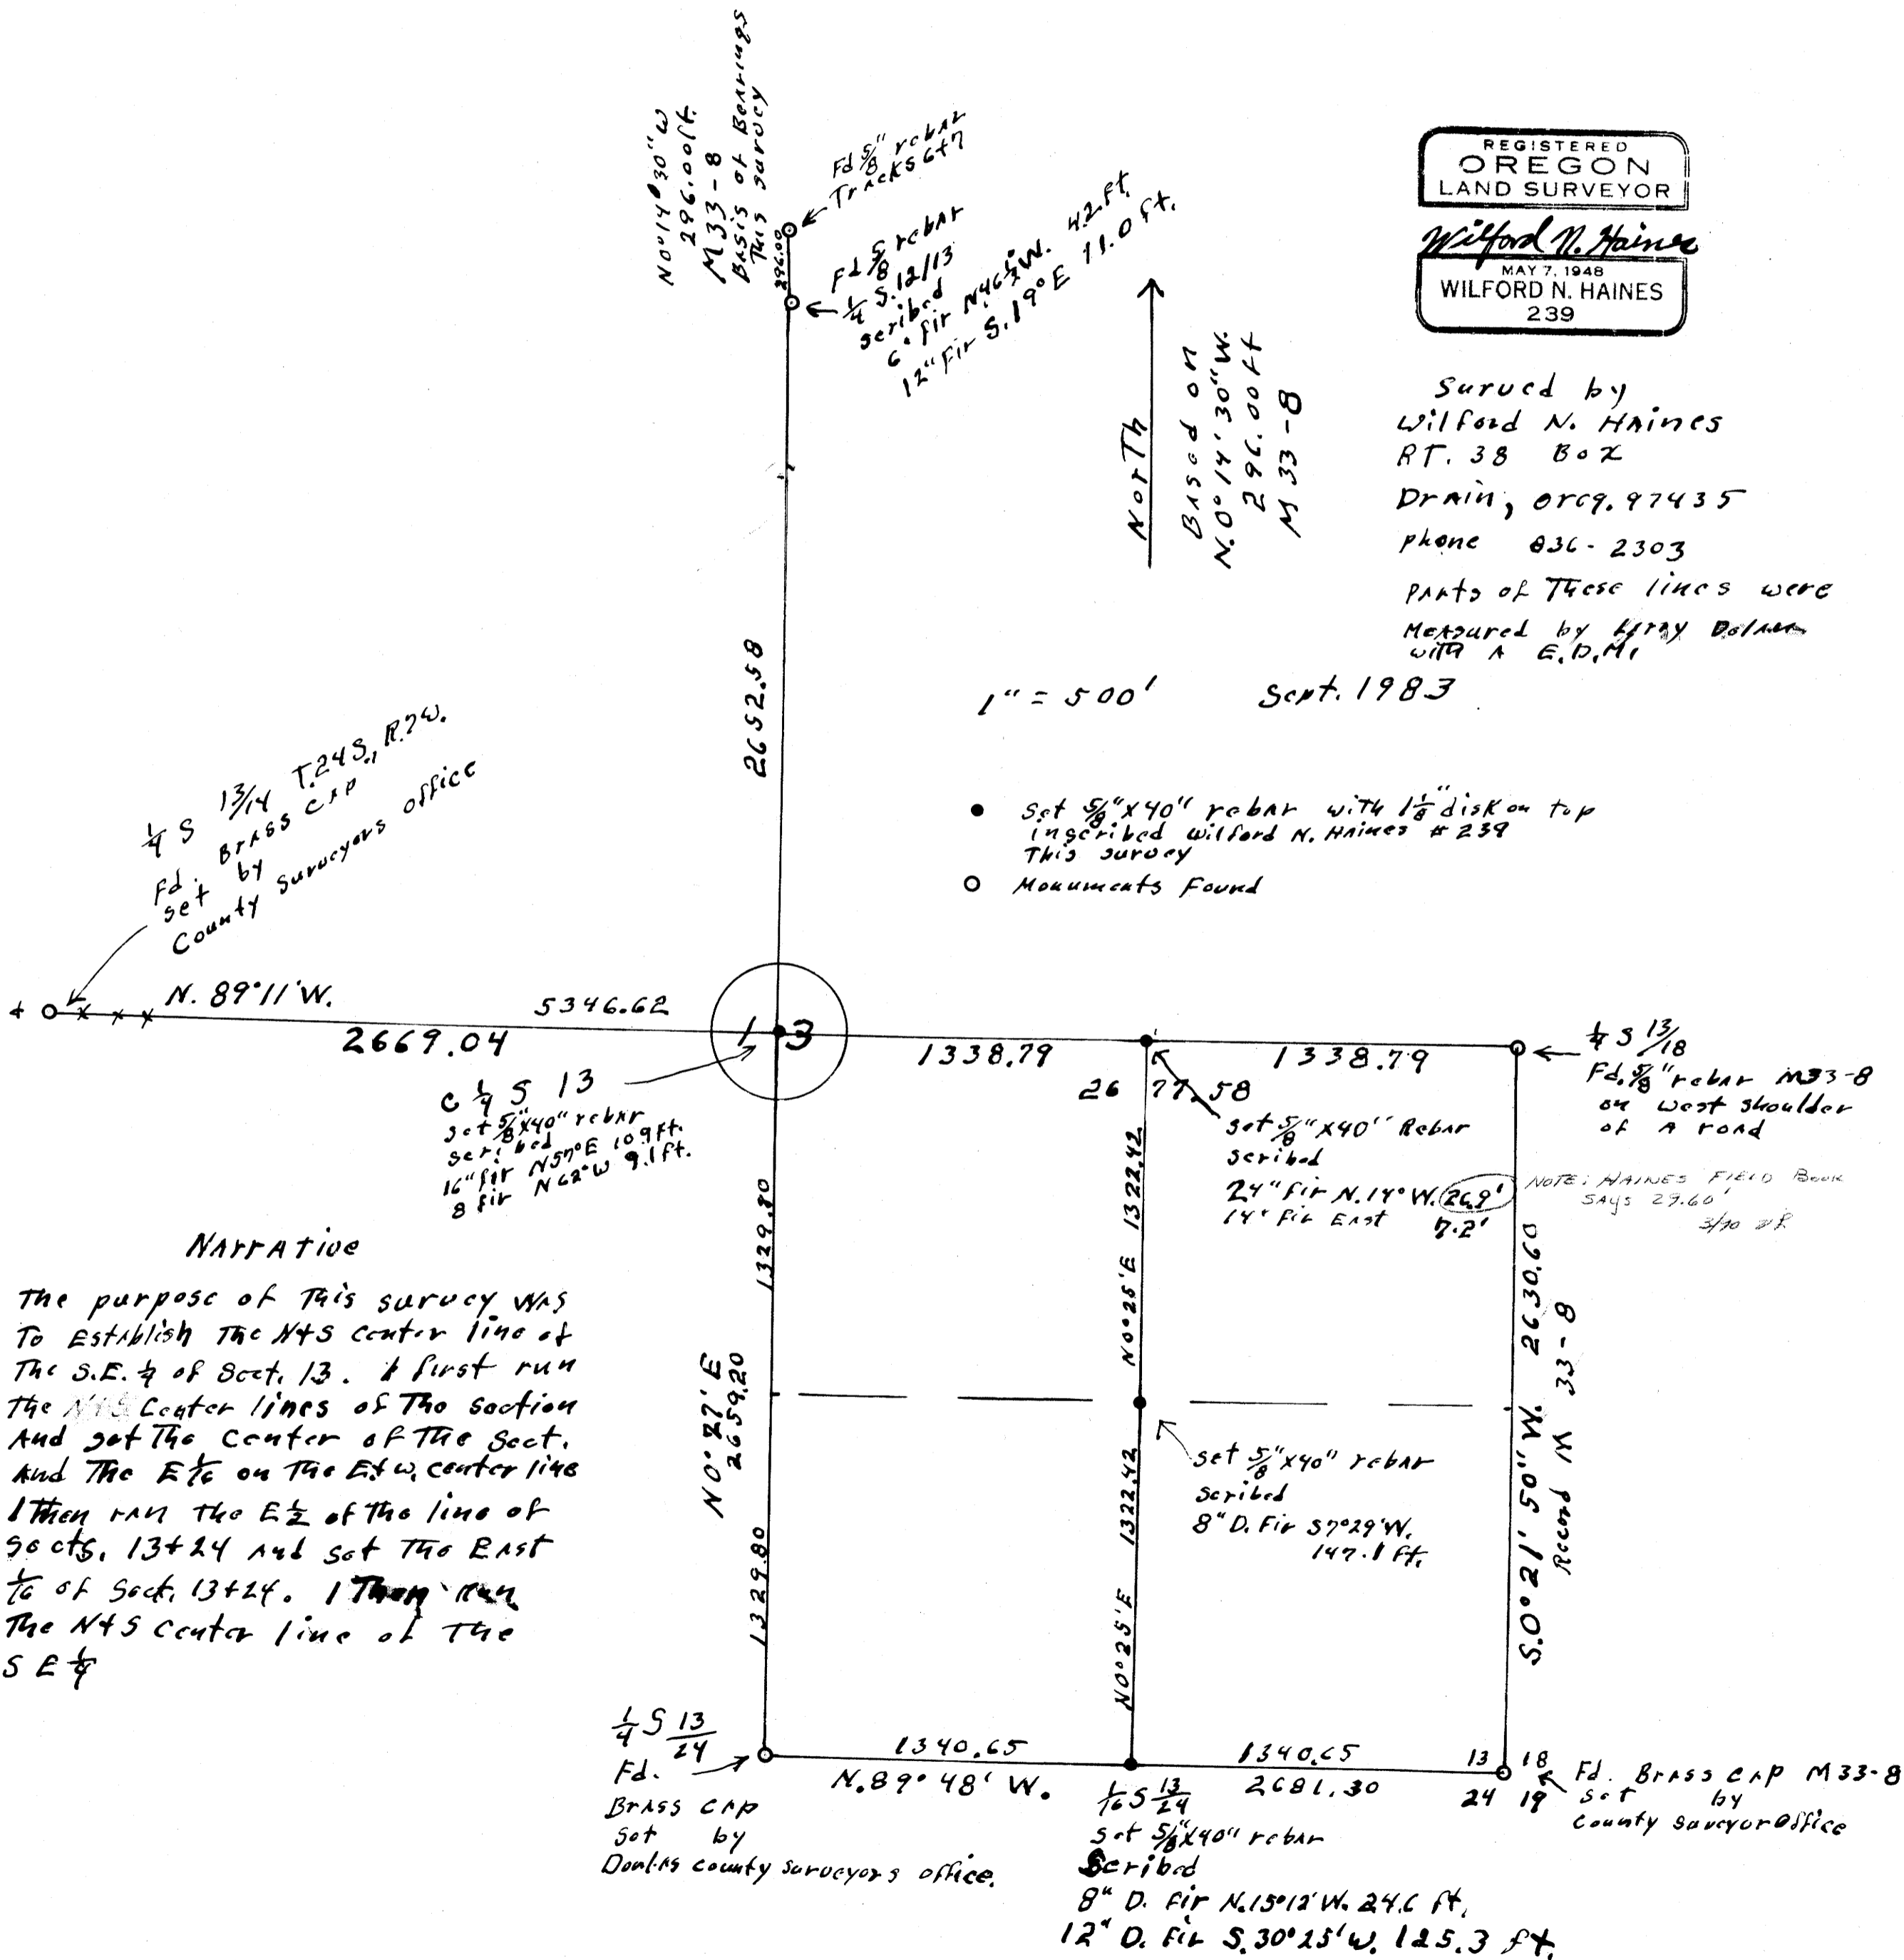 N0°14'30"W
296.00ft.
M33-8
Basis of Bearings
This survey
296.00
Fd 5/8" rebar
Tracks 6+7
Fd 5/8 rebar
1/4 S.12/13
scribed
6" fir N46 1/2°W. 4.2 ft.
12" Fir S.19°E 11.0 ft.
REGISTERED
OREGON
LAND SURVEYOR
Wilford N. Haines
MAY 7, 1948
WILFORD N. HAINES
239
North
Based on
N.0°14'30"W.
296.00 ft
M33-8
Surved by
Wilford N. Haines
RT. 38 Box
Drain, Oreg. 97435
phone 836-2303
Parts of These lines were
Measured by
with A E.D.M.
1" = 500' Sept. 1983
2652.58
Set 5/8" x 40" rebar with 1 1/8" disk on top
inscribed Wilford N. Haines # 239
This survey
Monuments Found
1/4 S 13/14 T.24S., R.7W.
Fd. Brass cap
set by
County Surveyors office
N. 89°11'W. 5346.62
2669.04
13
1338.79
1338.79
2677.58
1/4 S 13/18
Fd. 5/8" rebar M33-8
on west shoulder
of A road
C 1/4 S 13
set 5/8 x 40" rebar
scribed
16" fir N57°E 10.9 ft.
8 fir N62°W 9.1 ft.
set 5/8" x 40" Rebar
scribed
24" fir N.14°W. 26.9'
14" fir East 7.2'
NOTE: HAINES FIELD BOOK
SAYS 29.60'
1329.80
N0°27'E
2659.20
1329.80
N0°25'E 1322.42
N0°25'E 1322.42
S.0°21'50"W. 2630.60
Record M 33-8
set 5/8" x 40" rebar
scribed
8" D. Fir S7°29'W.
147.1 ft.
Narrative
The purpose of This survey was
To Establish The N+S center line of
The S.E. 1/4 of Sect. 13. I first run
the Center lines of The section
And set The Center of The Sect.
And The E 1/16 on The E+W. center line
I Then ran the E 1/2 of the line of
Sects. 13+24 and set The East
1/16 of Sect. 13+24. I Then run
The N+S center line of The
S E 1/4
1/4 S 13/24
Fd.
Brass cap
set by
Doulas county surveyors office.
1340.65
1340.65
N.89°48'W.
2681.30
1/16 S 13/24
set 5/8 x 40" rebar
Scribed
8" D. fir N.15°12'W. 24.6 ft.
12" D. fir S.30°25'W. 125.3 ft.
13 18
24 19
Fd. Brass cap M33-8
set by
County Saveyor office